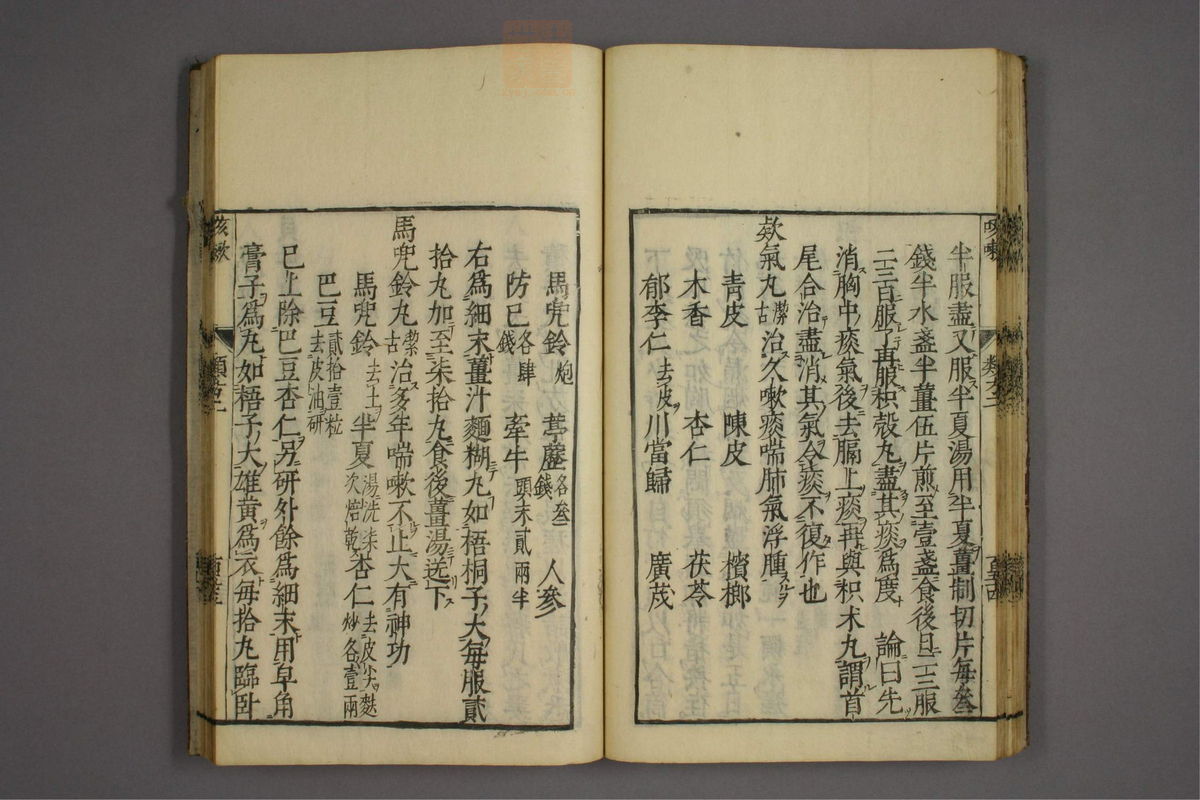 半服盡又服半夏湯用半夏薑制切片每叁
錢半水盞半薑伍片煎至壹盞食後日二三服
二三百服了再服枳殼丸盡其痰爲度 論曰先
消胸中痰氣後去膈上痰再與枳朮丸謂首
尾合治盡消其氣令痰不復作也
欬氣丸潔古治久嗽痰喘肺氣浮腫
青皮 陳皮 檳榔
木香 杏仁 茯苓
郁李仁去皮 川當歸 廣茂
馬兜鈴炮 葶藶各叁錢 人參
防已各肆錢 牽牛頭末貳兩半
右爲細末薑汁麵糊丸如梧桐子大每服貳
拾丸加至柒拾丸食後薑湯送下
馬兜鈴丸潔古治多年喘嗽不止大有神功
馬兜鈴去土 半夏湯洗柒次焙乾 杏仁去皮尖麩炒各壹兩
巴豆貳拾壹粒去皮油研
已上除巴豆杏仁另研外餘爲細末用皁角
膏子爲丸如梧子大雄黃爲衣每拾丸臨卧